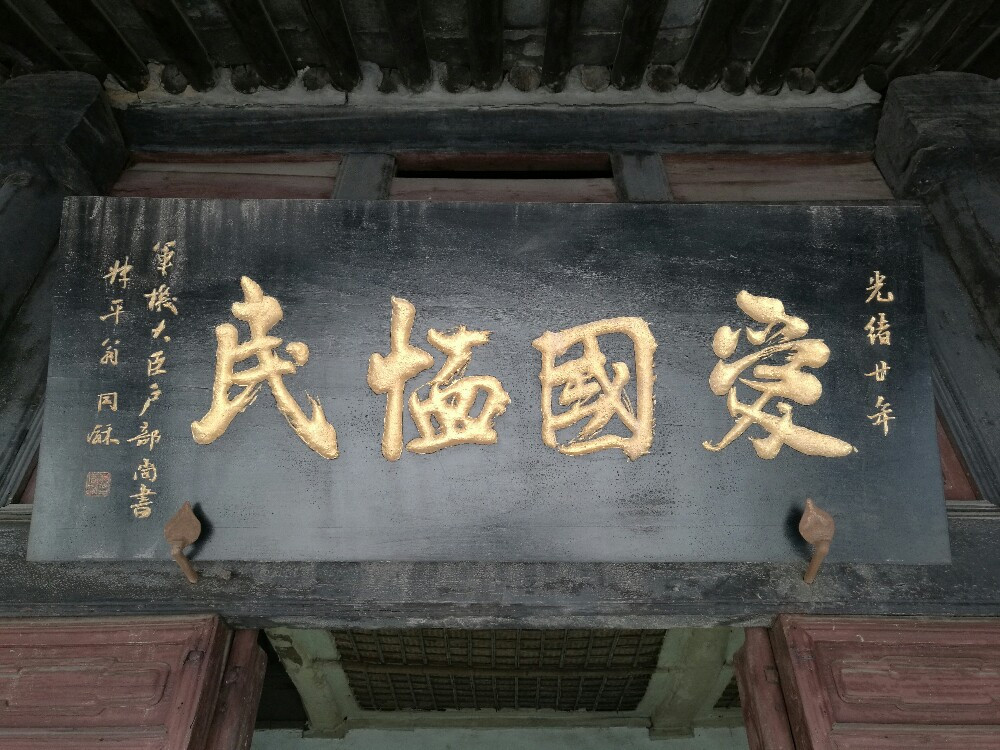 光緒廿年
愛國恤民
軍機大臣戶部尚書
叔平翁同龢